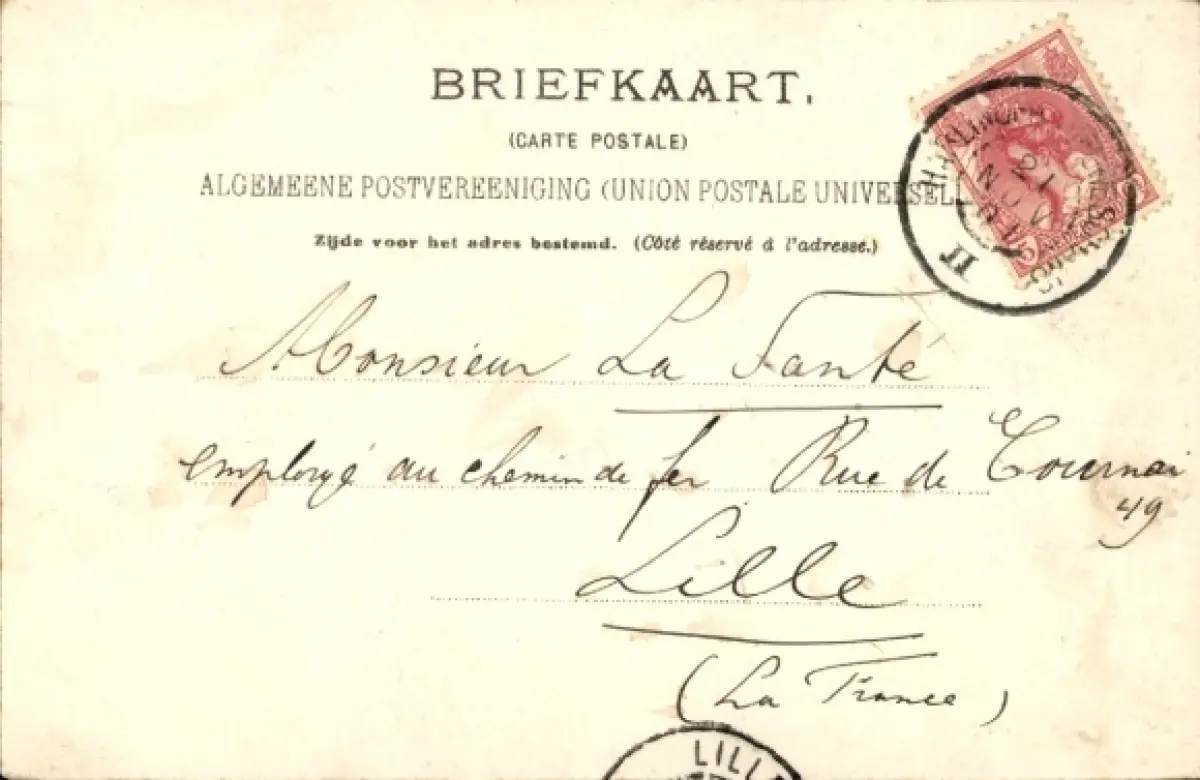 BRIEFKAART.
(CARTE POSTALE)
ALGEMEENE POSTVEREENIGING (UNION POSTALE UNIVERSELL
Zijde voor het adres bestemd. (Côté réservé à l'adresse.)
Monsieur La Fanté
employé au chemin de fer Rue de Tournai
49
Lille
(La France)
LILLE